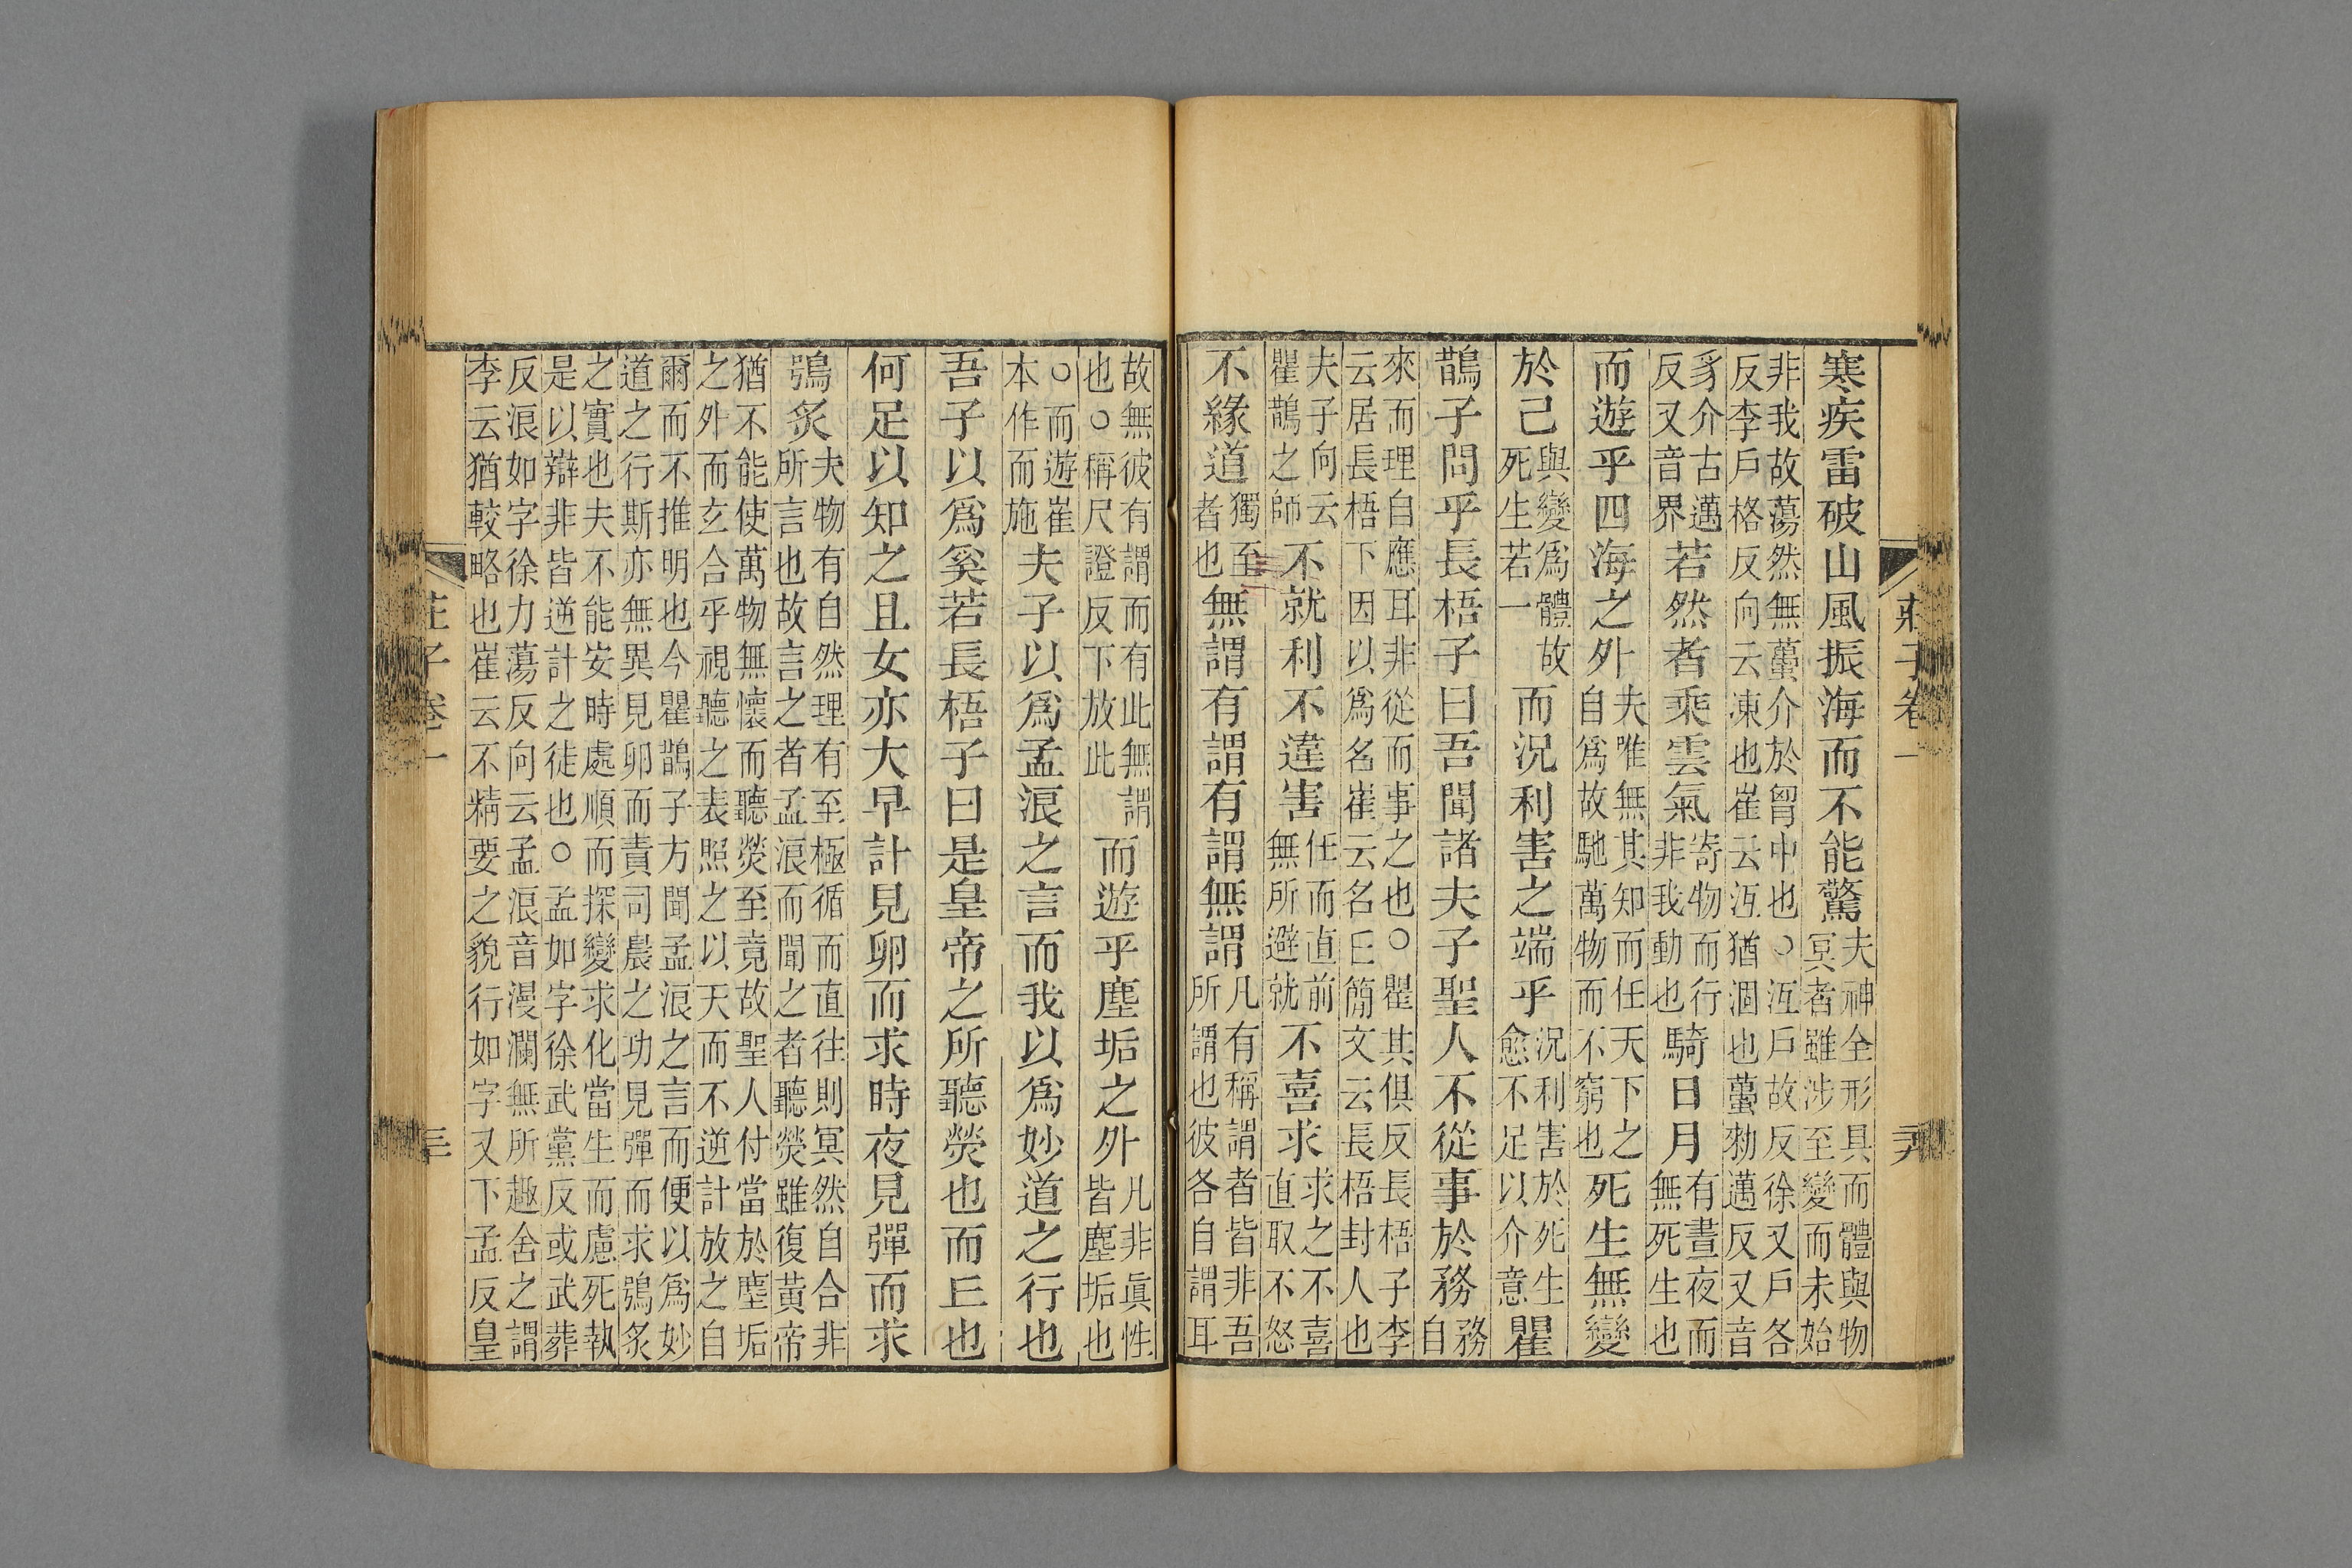 莊子卷一
寒疾雷破山風振海而不能驚夫神全形具而體與物冥者雖涉至變而未始
非我故蕩然無蠆介於胷中也○沍戶故反徐又戶各
反李戶格反向云凍也崔云沍猶涸也蠆勑邁反又音
豸介古邁反又音界若然者乘雲氣寄物而行非我動也騎日月有晝夜而無死生也
而遊乎四海之外夫唯無其知而任天下之自爲故馳萬物而不窮也死生無變
於己與變爲體故死生若一而況利害之端乎況利害於死生愈不足以介意瞿
鵲子問乎長梧子曰吾聞諸夫子聖人不從事於務務自
來而理自應耳非從而事之也○瞿其俱反長梧子李
云居長梧下因以爲名崔云名丘簡文云長梧封人也
夫子向云瞿鵲之師不就利不違害任而直前無所避就不喜求求之不喜直取不怒
不緣道獨至者也無謂有謂有謂無謂凡有稱謂者皆非吾所謂也彼各自謂耳
故無彼有謂而有此無謂也○稱尺證反下放此而遊乎塵垢之外凡非眞性皆塵垢也
○而遊崔本作而施夫子以爲孟浪之言而我以爲妙道之行也
吾子以爲奚若長梧子曰是皇帝之所聽熒也而丘也
何足以知之且女亦大早計見卵而求時夜見彈而求
鴞炙夫物有自然理有至極循而直往則冥然自合非所言也故言之者孟浪而聞之者聽熒雖復黃帝
猶不能使萬物無懷而聽熒至竟故聖人付當於塵垢
之外而玄合乎視聽之表照之以天而不逆計放之自
爾而不推明也今瞿鵲子方聞孟浪之言而便以爲妙
道之行斯亦無異見卵而責司晨之功見彈而求鴞炙
之實也夫不能安時處順而探變求化當生而慮死執
是以辯非皆逆計之徒也○孟如字徐武黨反或武葬
反浪如字徐力蕩反向云孟浪音漫瀾無所趣舍之謂
李云猶較略也崔云不精要之貌行如字又下孟反皇
莊子卷一 三十